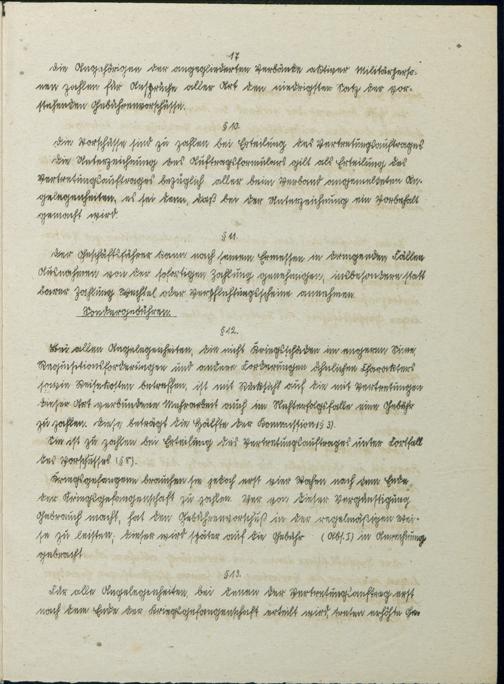 17
Die Angehörigen der angegliederten Verbände aktiver Militärperso-
nen zahlen für Ansprüche aller Art den niedrigsten Satz der vor-
stehenden Gebührenvorschüsse.
§ 10.
Die Vorschüsse sind zu zahlen bei Erteilung des Vertretungsauftrages
Die Unterzeichnung des Auftragsformulars gilt als Erteilung des
Vertretungsauftrages bezüglich aller beim Verband angemeldeten An-
gelegenheiten, es sei denn, daß bei der Unterzeichnung ein Vorbehalt
gemacht wird
§ 11.
Der Geschäftsführer kann nach seinem Ermessen in dringenden Fällen
Ausnahmen von der sofortigen Zahlung genehmigen, insbesondere statt
barer Zahlung Wechsel oder Verpflichtungsscheine annehmen
Sondergebühren.
§ 12.
Bei allen Angelegenheiten, die nicht Kriegsschäden im engeren Sinne,
Requisitionsforderungen und andere Forderungen ähnlichen Charakters
sowie Reisekosten betreffen, ist mit Rücksicht auf die mit Vertretungen
dieser Art verbundene Mehrarbeit auch im Nichterfolgsfalle eine Gebühr
zu zahlen. Diese beträgt die Hälfte der Kommission (§ 3).
Sie ist zu zahlen bei Erteilung des Vertretungsauftrages unter Fortfall
des Vorschusses (§ 8).
Kriegsgefangene brauchen sie jedoch erst vier Wochen nach dem Ende
der Kriegsgefangenschaft zu zahlen. Wer von dieser Vergünstigung
Gebrauch macht, hat den Gebührenvorschuß in der regelmäßigen Wei-
se zu leisten, dieser wird später auf die Gebühr (Abs. 1) in Anrechnung
gebracht
§ 13.
Für alle Angelegenheiten, bei denen der Vertretungsauftrag erst
nach dem Ende der Kriegsgefangenschaft erteilt wird, treten erhöhte Ge-